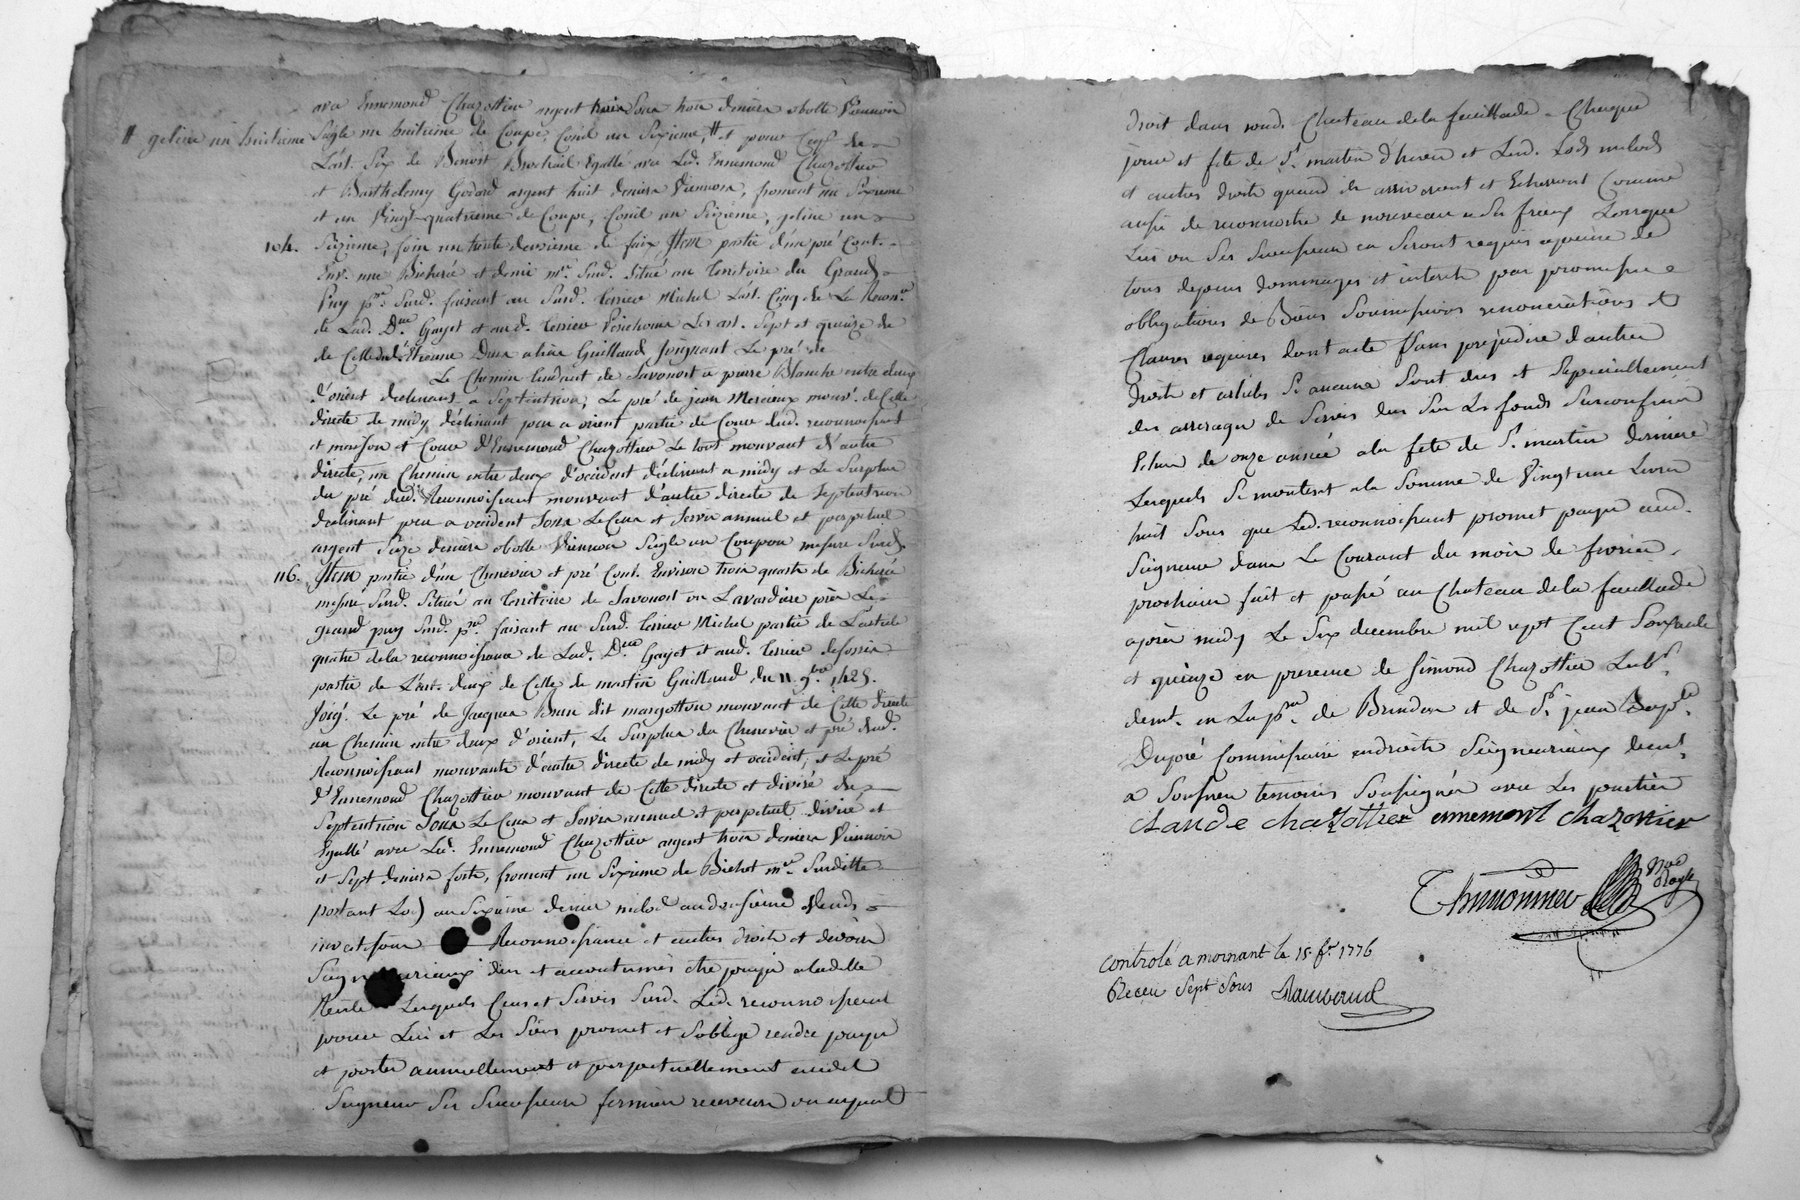 avec Ennemond Chazottier argent trois Sous trois deniers obolle Viennois
# geline un huitieme
Seigle un huitieme de Coupe, Conil un Sixieme, # et pour Ceux de
L'art. Six de Benoist Brochail Egallé avec Led. Ennemond Chazottier
et Barthelemy Godard argent huit deniers Viennois, froment un Sixieme
et un Vingt quatrieme de Coupe, Conil un Seizieme, geline un
104. Seizieme, foin un trente deuzieme de faix Item partie d'un pré Cont.
Env. une Bicherée et demie m.re Surd. Situé au Territoire du Grand
Puy p.sse Surd. faisant au Surd. Terrier Michel L'art. Cinq de La Reconn.ce
de Lad. D.me Gayot et aud. Terrier Perichons Les art. Sept et quinze de
de Celle d'Etienne Brun alias Guillaud Joignant Le pré de
Le Chemin tendant de Savonost a pierre Blanche entre deux
d'orient declinant a Septentrion, Le pré de jean Merceaux mouv.t de Cette
directe de midy declinant peu a orient partie de Cour dud. reconnoissant
et maison et Cour d'Ennemond Chazottier Le tout mouvant d'autre
directe, un Chemin entre deux d'occident declinant a midy et Le Surplus
du pré dud. Reconnoissant mouvant d'autre directe de Septentrion
declinant peu a occident Sous Le Cens et Servis annuel et perpetuel
argent Seize deniers obolle Viennois Seigle un Coupon mesure Surd.
116. Item partie d'un Chenevier et pré Cont. Environ trois quarts de Bicherée
mesure Surd. Situés au Territoire de Savonost ou Lavardière près Le
grand puy Surd. p.sse faisant au Surd. Terrier Michel partie de L'article
quatre de la reconnoissance de Lad. D.me Gayot et aud. Terrier
partie de L'art. deux de Celle de martin Guillaud du 11 9.bre 1425.
Joig.t Le pré de Jacques Brun dit margotton mouvant de Cette directe
un Chemin entre deux d'orient, Le Surplus du Chenevier et pré dud.
Reconnoissant mouvants d'autre directe de midy et occident, et Le pré
d'Ennemond Chazottier mouvant de Cette directe et divisé de
Septentrion Sous Le Cens et Servis annuel et perpetuel divisé et
Egallé avec Led. Ennemond Chazottier argent trois deniers Viennois
et Sept deniers forts, froment un Sixieme de Bichet m.re Surditte
portant Lod au Sixieme denier milod au douzieme Vends
investison Reconnoissance et autres droits et devoirs
Seigneuriaux dus et accoutumés etre payés a ladette
Rente Lesquels Cens et Servis Surd. Led. reconnoissant
pour Lui et Les Siens promet et S'oblige rendre payer
et porter annuellement et perpetuellement audit
Seigneur Ses Successeurs fermiers receveurs ou ayant
droit dans sond. Chateau de la feuillade Chaque
jour et fete de S.t martin d'hiver et Lesd. Lods milods
et autres droits quand ils arriveront et Echerront Comme
aussi de reconnoitre de nouveau a Ses fraix Lorsque
Lui ou Ses Successeurs en Seront requis a peine de
tous depens dommages et interets par promesses
obligations de Biens Soumissions renonciations et
Clauses requises dont acte Sans prejudice d'autres
droits et articles Si aucuns Sont dus et Specialement
des arrerages de Servis dus Sur Les fonds Surconfinés
Echus de onze années a la fete de S.t martin derniere
Lesquels Se montent a la Somme de Vingt une Livres
huit Sous que Led. reconnoissant promet payer aud.
Seigneur dans Le Courant du mois de fevrier
prochain fait et passé au Chateau de la feuillade
apres midy Le Six decembre mil sept Cent Soixante
et quinze en presence de Simond Chazottier Lab.r
demt. en La p.sse de Brindas et de S.r jean Bap.te
Dupré Commissaire en droits Seigneuriaux demt.
a Soucieu temoins Soussignés avec Les parties
claude chazottier ennemont chazottier
Thimonnier No.re Royal
Controlé a mornant le 15 f.r 1776
Reçeu Sept Sous